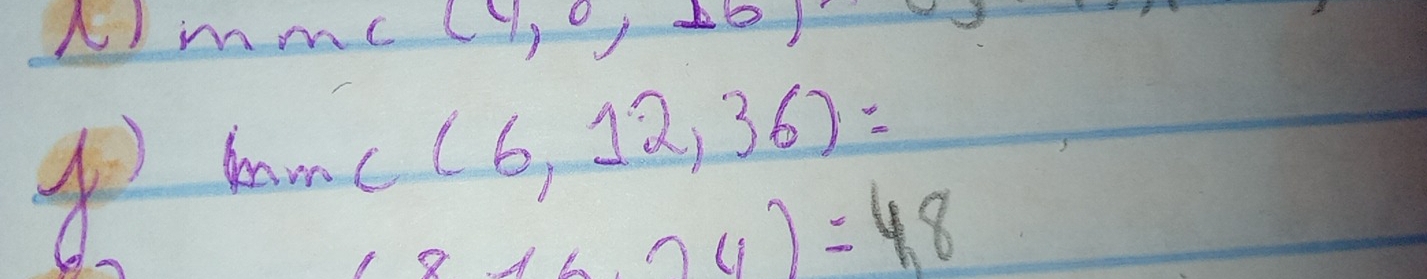 i) mmc (4, 8, 16)
j) mmc (6, 12, 36) =
(8, 16, 24) = 48